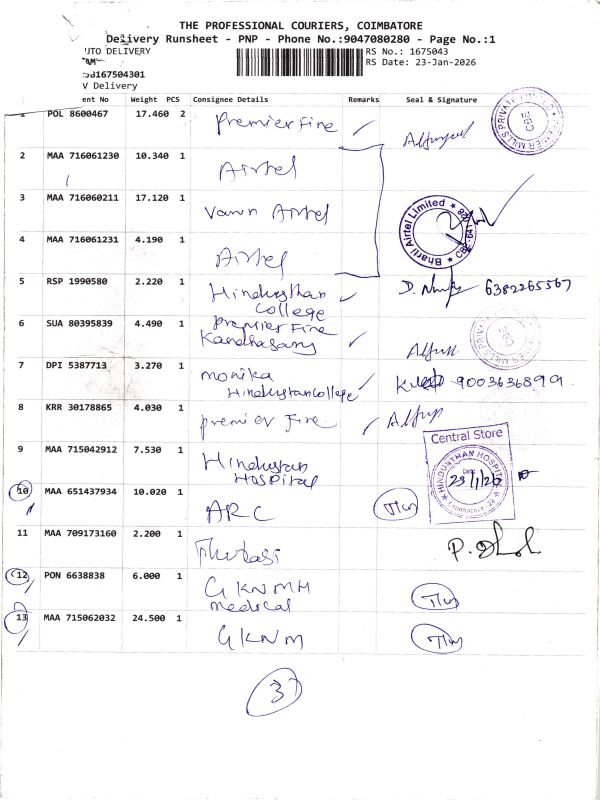 THE PROFESSIONAL COURIERS, COIMBATORE
Delivery Runsheet - PNP - Phone No.:9047080280 - Page No.:1
UTO DELIVERY
RS No.: 1675043
RS Date: 23-Jan-2026
167504301
V Delivery
ent No Weight PCS Consignee Details Remarks Seal & Signature
1 POL 8600467 17.460 2 Premier Fine
2 MAA 716061230 10.340 1 Airtel
3 MAA 716060211 17.120 1 Varun Airtel
Bharti Airtel Limited
4 MAA 716061231 4.190 1 Airtel
5 RSP 1990580 2.220 1 Hindusthan College 6382265567
6 SUA 80395839 4.490 1 Premier Fine
Kandhasamy
7 DPI 5387713 3.270 1 monika
Hindustan College
8 KRR 30178865 4.030 1 premier Fine
Central Store
9 MAA 715042912 7.530 1 Hindustan Hospital
HINDUSTHAN HOSPITAL
Date
23/1/26
10 MAA 651437934 10.020 1 ARC
11 MAA 709173160 2.200 1
12 PON 6638838 6.000 1 GKNMH
medical
13 MAA 715062032 24.500 1 GKNM
3